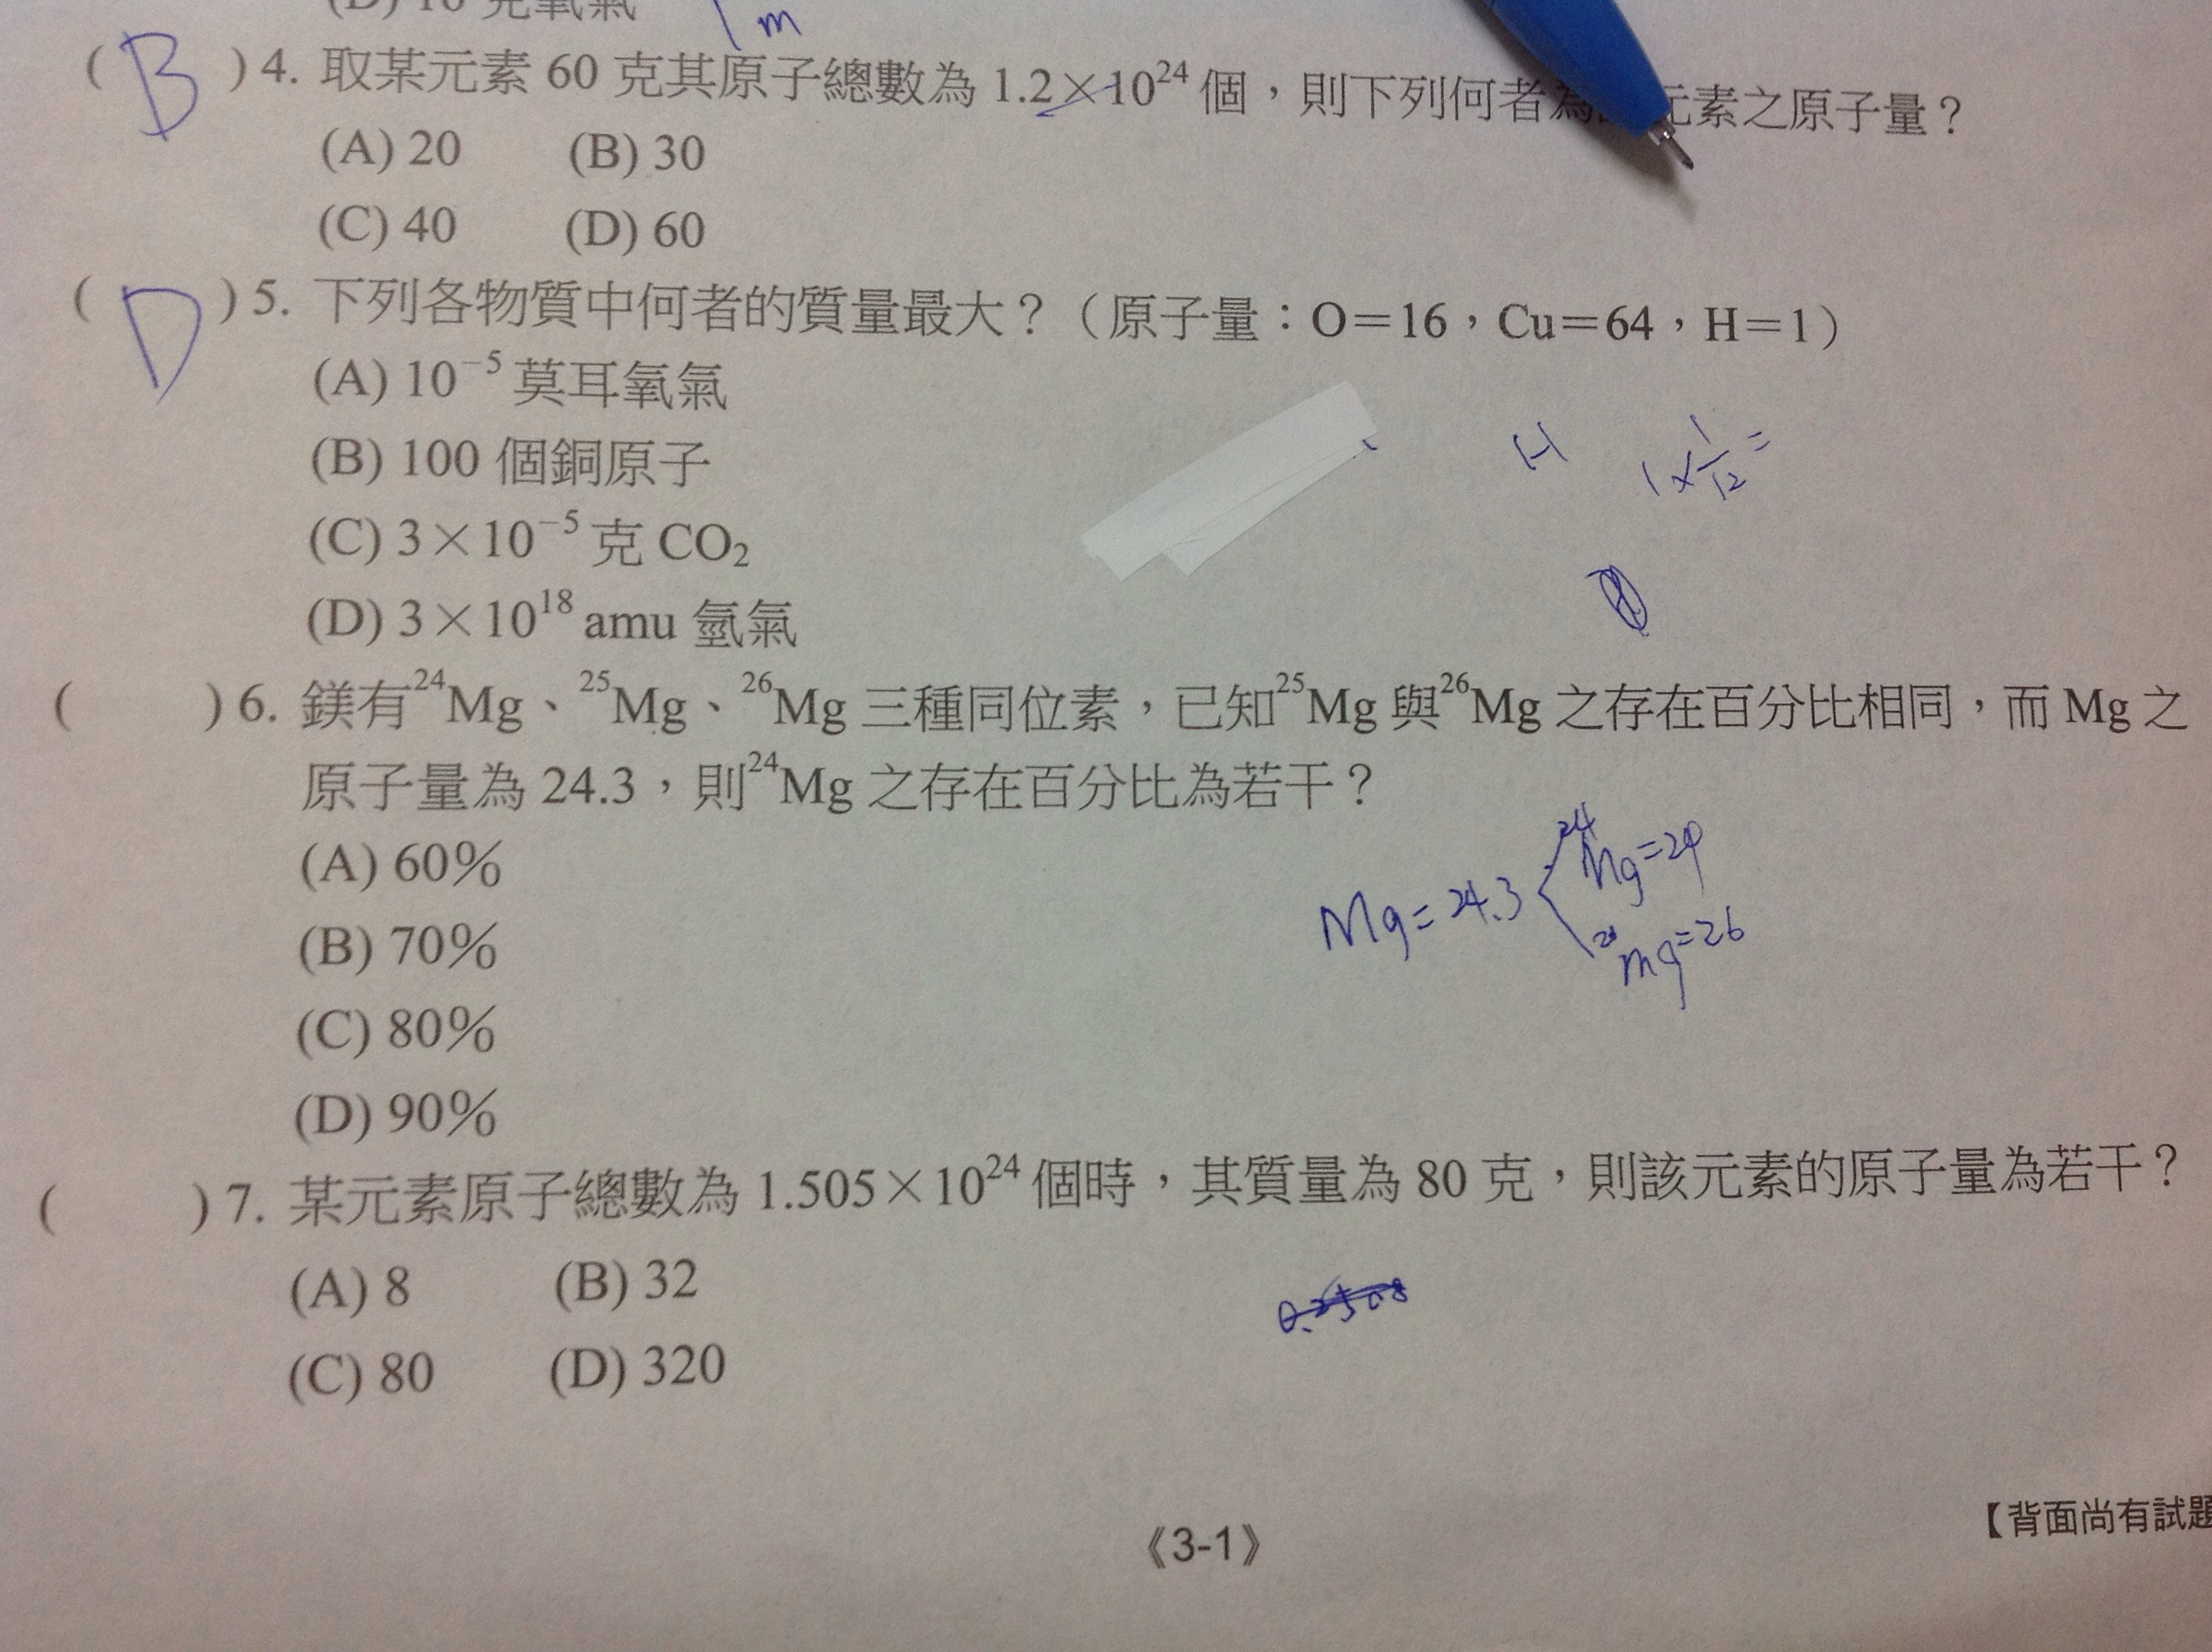 (D) 10 克氧氣
m
( B ) 4. 取某元素 60 克其原子總數為 1.2×10²⁴ 個，則下列何者為 元素之原子量？
(A) 20 (B) 30
(C) 40 (D) 60
( D ) 5. 下列各物質中何者的質量最大？（原子量：O＝16，Cu＝64，H＝1）
(A) 10⁻⁵ 莫耳氧氣
(B) 100 個銅原子
H 1×1/12=
(C) 3×10⁻⁵ 克 CO₂
(D) 3×10¹⁸ amu 氫氣
( ) 6. 鎂有²⁴Mg、²⁵Mg、²⁶Mg 三種同位素，已知²⁵Mg 與²⁶Mg 之存在百分比相同，而 Mg 之
原子量為 24.3，則²⁴Mg 之存在百分比為若干？
(A) 60%
²⁴Mg=24
Mg=24.3
(B) 70%
Mg=26
(C) 80%
(D) 90%
( ) 7. 某元素原子總數為 1.505×10²⁴ 個時，其質量為 80 克，則該元素的原子量為若干？
(A) 8 (B) 32
(C) 80 (D) 320
《3-1》
【背面尚有試題